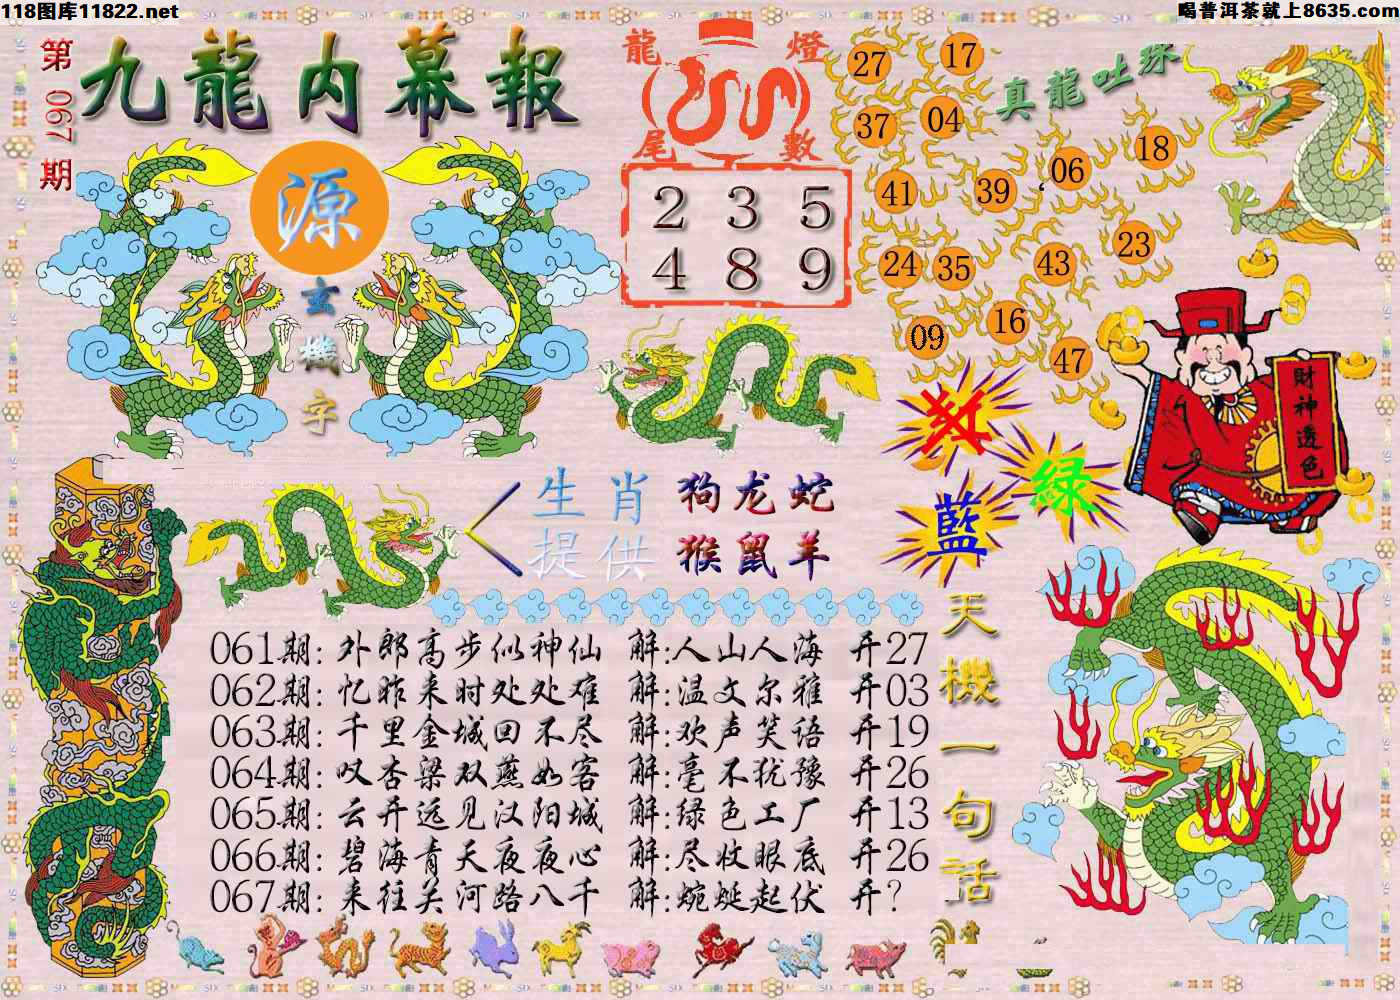 118图库11822.net
喝普洱茶就上8635.com
第067期
九龍内幕報
源
玄機字
龍燈尾數
2 3 5
4 8 9
真龍吐珠
27 17
37 04
41 39 06 18
24 35 43 23
09 16 47
財神透色
紅
绿
藍
生肖 狗龙蛇
提供 猴鼠羊
天機一句话
061期: 外郎高步似神仙 解:人山人海 开27
062期: 忆昨来时处处难 解:温文尔雅 开03
063期: 千里金城回不尽 解:欢声笑语 开19
064期: 叹杏梁双燕如客 解:毫不犹豫 开26
065期: 云开远见汉阳城 解:绿色工厂 开13
066期: 碧海青天夜夜心 解:尽收眼底 开26
067期: 来往关河路八千 解:蜿蜒起伏 开?